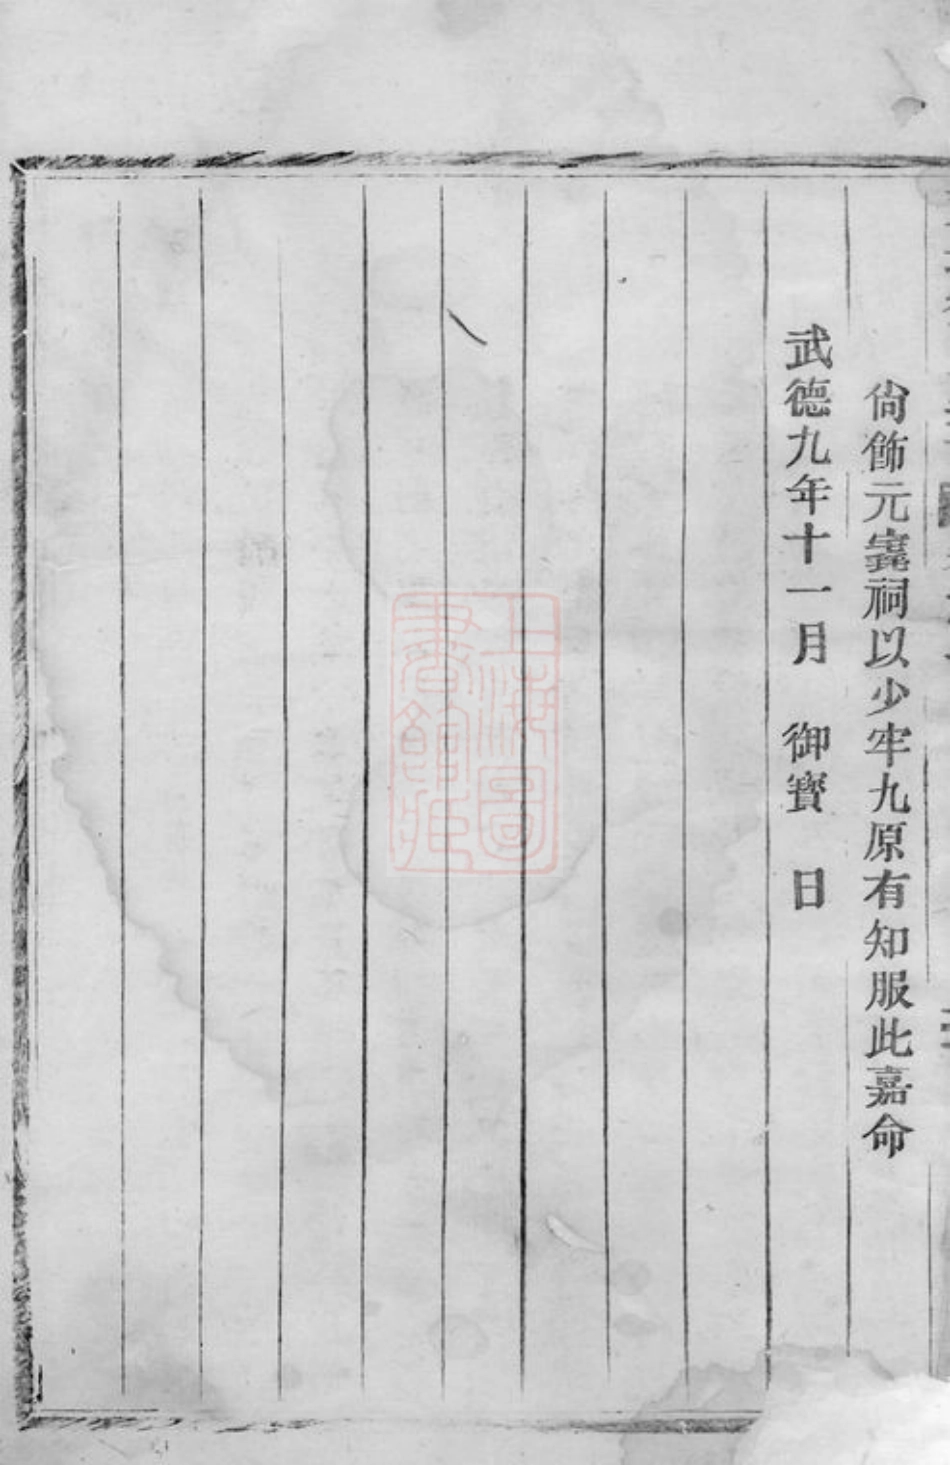 尙飾元寔祠以少牢九原有知服此嘉命
武德九年十一月　御寶　日
上海圖
書館藏